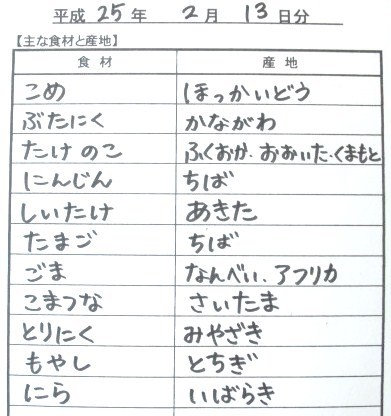 平成 25 年 2 月 13 日分
【主な食材と産地】
食材 産地
こめ ほっかいどう
ぶたにく かながわ
たけのこ ふくおか.おおいた.くまもと
にんじん ちば
しいたけ あきた
たまご ちば
ごま なんべい、アフリカ
こまつな さいたま
とりにく みやざき
もやし とちぎ
にら いばらき